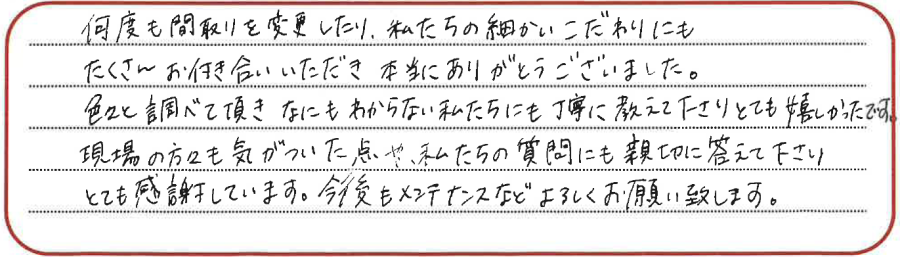 何度も間取りを変更したり、私たちの細かいこだわりにも
たくさんお付き合いいただき 本当にありがとうございました。
色々と調べて頂き なにもわからない私たちにも丁寧に教えて下さりとても嬉しかったです。
現場の方々も気がついた点や、私たちの質問にも親切に答えて下さり
とても感謝しています。今後もメンテナンスなどよろしくお願い致します。